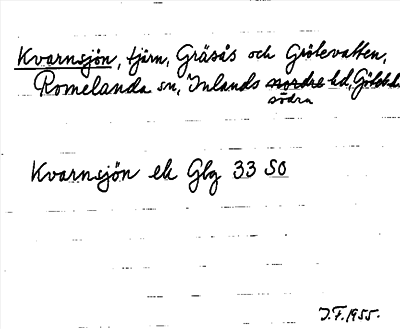 Kvarnsjön, tjärn, Gräsås och Grölevatten,
Romelanda sn, Inlands nordre hd, Götebd.
södra
Kvarnsjön ek Gbg 33 SO
J.F. 1955.